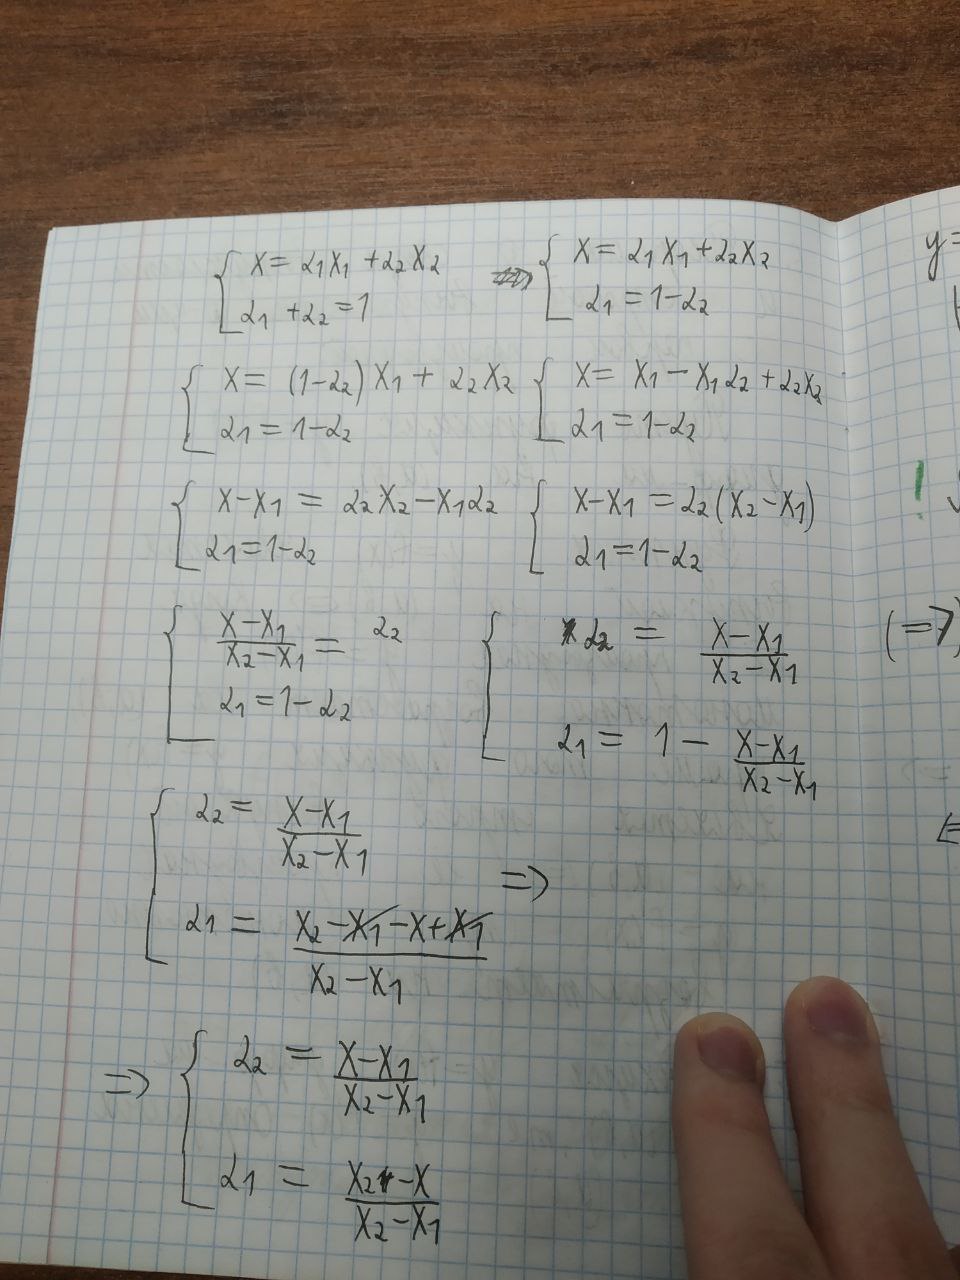 { x = α₁x₁ + α₂x₂ { x = α₁x₁ + α₂x₂
α₁ + α₂ = 1 α₁ = 1 - α₂
{ x = (1 - α₂)x₁ + α₂x₂ { x = x₁ - x₁α₂ + α₂x₂
α₁ = 1 - α₂ α₁ = 1 - α₂
{ x - x₁ = α₂x₂ - x₁α₂ { x - x₁ = α₂(x₂ - x₁)
α₁ = 1 - α₂ α₁ = 1 - α₂
{ (x - x₁)/(x₂ - x₁) = α₂ { α₂ = (x - x₁)/(x₂ - x₁)
α₁ = 1 - α₂ α₁ = 1 - (x - x₁)/(x₂ - x₁)
{ α₂ = (x - x₁)/(x₂ - x₁)
α₁ = (x₂ - x₁ - x + x₁)/(x₂ - x₁) =>
=> { α₂ = (x - x₁)/(x₂ - x₁)
α₁ = (x₂ - x)/(x₂ - x₁)
y=
!
(=>)